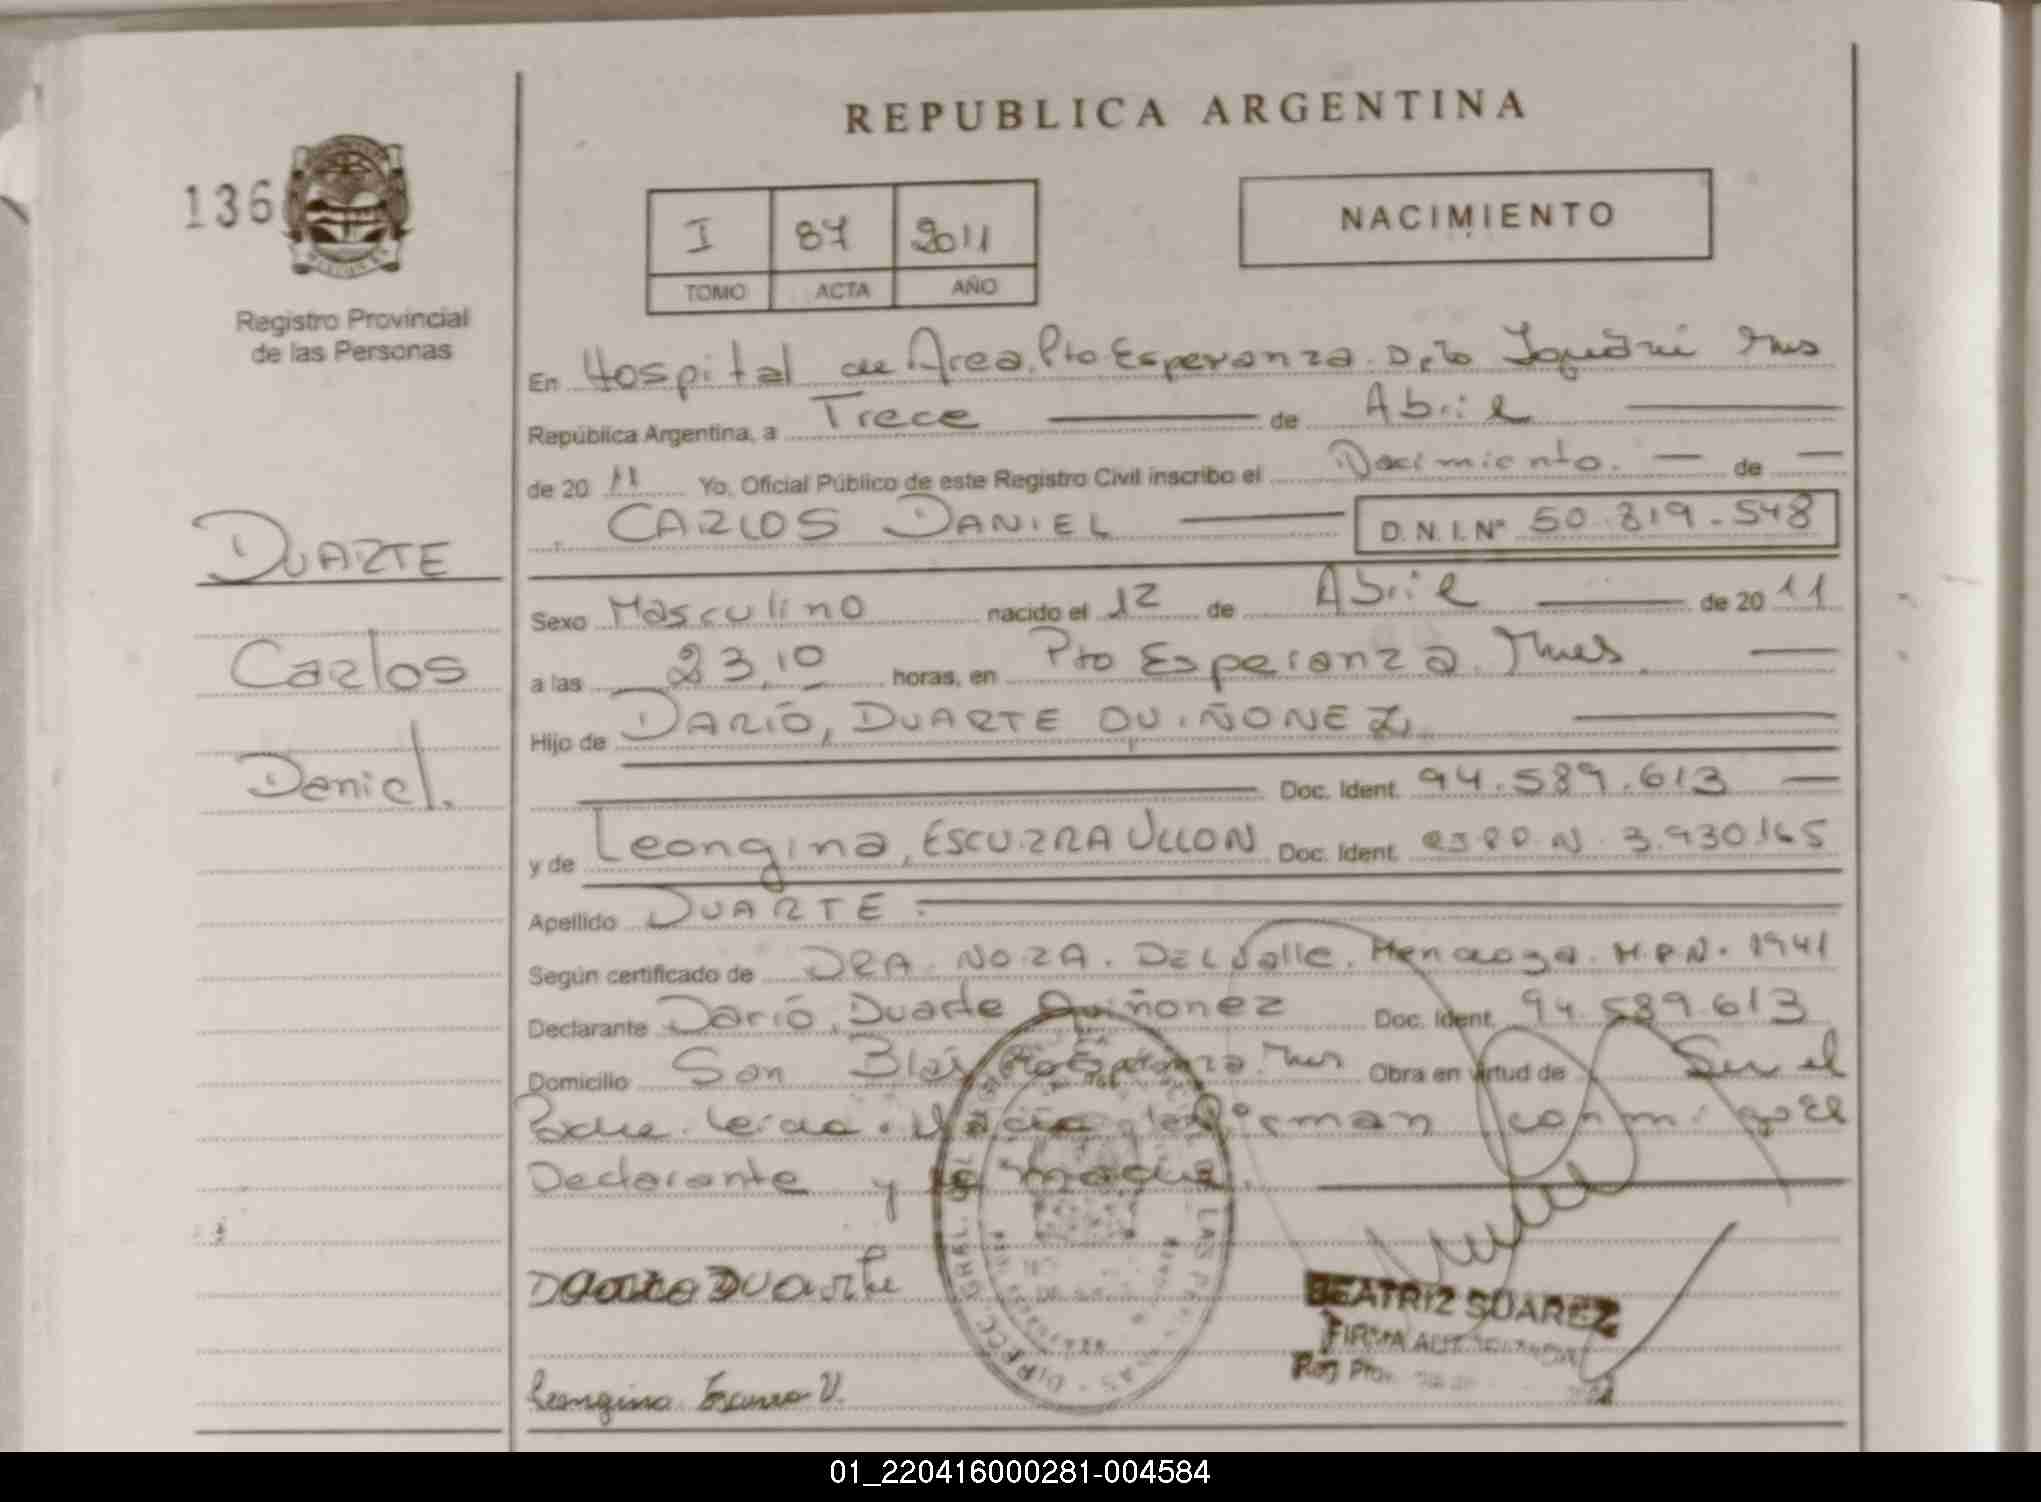 REPUBLICA ARGENTINA
136
I 87 2011
TOMO ACTA AÑO
NACIMIENTO
MISIONES
Registro Provincial
de las Personas
En Hospital de Area. Pto Esperanza. Dpto Iguazú Mnes
República Argentina, a Trece de Abril
de 2011 Yo, Oficial Público de este Registro Civil inscribo el Nacimiento. de
CARLOS DANIEL D.N.I.Nº 50.819.548
DUARTE
Carlos
Daniel.
Sexo Masculino nacido el 12 de Abril de 2011
a las 23,10 horas, en Pto Esperanza. Mnes.
Hijo de DARIÓ, DUARTE QUIÑONEZ,
Doc. Ident. 94.589.613
y de Leongina, ESCURRA ULLON Doc. Ident. 3.930165
Apellido DUARTE.
Según certificado de DRA. NORA. Del Valle. M.P.N. 1941
Declarante Darió, Duarte Quiñonez Doc. Ident. 94.589.613
Domicilio San Blas Pto Esperanza. Mnes Obra en virtud de Ser el
Padre. Leida. el firman conmigo el
Declarante y la madre.
Duarte
Leongina Escurra U.
BEATRIZ SUAREZ
FIRMA AUTORIZADA
Reg Prov.
01_220416000281-004584